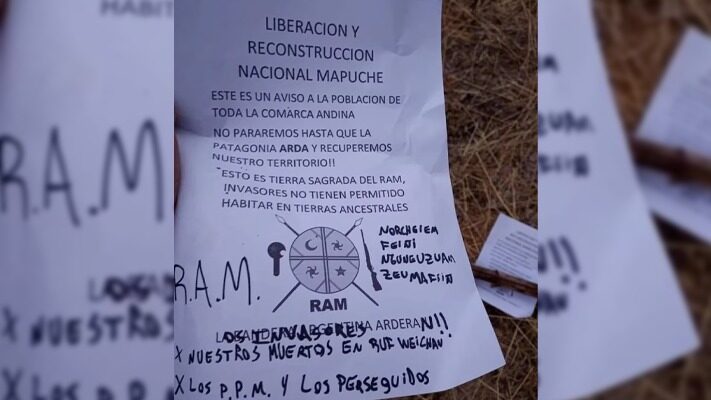 LIBERACION Y
RECONSTRUCCION
NACIONAL MAPUCHE
ESTE ES UN AVISO A LA POBLACION DE
TODA LA COMARCA ANDINA
NO PARAREMOS HASTA QUE LA
PATAGONIA ARDA Y RECUPEREMOS
NUESTRO TERRITORIO!!
ESTO ES TIERRA SAGRADA DEL RAM,
INVASORES NO TIENEN PERMITIDO
HABITAR EN TIERRAS ANCESTRALES
NORCHEIEM
FEIDI
NGUNGUZUAM
R.A.M.
RAM
LOS INVASORES ARGENTINA ARDERAN!!
X NUESTROS MUERTOS EN RUF WEICHAN!
X LOS P.P.M. Y LOS PERSEGUIDOS